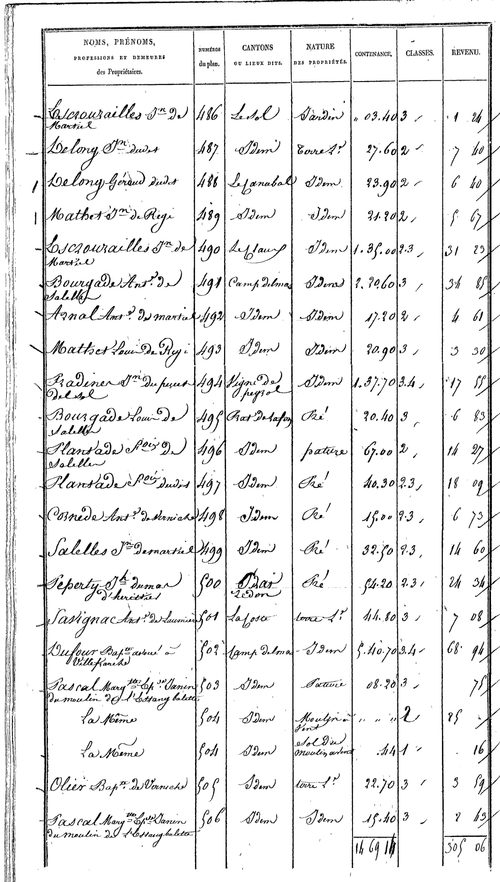 NOMS, PRÉNOMS, PROFESSIONS ET DEMEURES des Propriétaires. NUMÉROS du plan. CANTONS OU LIEUX DITS. NATURE DES PROPRIÉTÉS. CONTENANCE. CLASSES. REVENU.
Escrouzailles Jn de Martiel 486 Le Sol Jardin " 03.40 3 1 24
Delong Jn dudit 487 Idem terre Lle 27.60 2 7 40
Delong Géraud dudit 488 Le Canabal Idem 23.90 2 6 40
Mathet Jn de Regi 489 Idem Idem 21.20 2 5 67
Escrouzailles Jn de Martiel 490 Le Claux Idem 1.35.00 2.3 31 23
Bourgade Ant. de Salelles 491 Camp delmas Idem 2.20.60 3 34 85
Aznal Ant. de martiel 492 Idem Idem 17.20 2 4 61
Mathet Louis de Regi 493 Idem Idem 20.90 3 3 30
494 Vigne de Idem 1.37.70 3.4 17 55
Bourgade Louis de Salelles 495 Prat de Lafon Pré 20.40 3 6 83
Plantade de Salelles 496 Idem pature 67.00 2 14 27
Plantade dudit 497 Idem Pré 40.30 2.3 18 09
Cornède Ant. de Verniche 498 Idem Pré 15.00 2.3 6 73
Salelles Jn de martiel 499 Idem Pré 32.50 2.3 14 60
500 Prat redon Pré 54.20 2.3 24 34
Savignac Ant. de Laumiere 501 La Coste terre Lle 44.80 3 7 08
Dufour Bapte avoué à Villefranche 502 Camp delmas Idem 5.40.70 3.4 68 94
Pascal Marg. Ep. Janin du moulin de l'Estang balette 503 Idem Pature 08.20 3 75
La Même 504 Idem Moulin à Vent " " " 2 25 "
La Même 504 Idem Sol du moulin à vent .44 1 16
Olier Bapte de Verniche 505 Idem terre Lle 22.70 3 3 59
Pascal Marg. Ep. Janin du moulin de l'Estang balette 506 Idem Idem 15.40 3 2 43
14 69 14 305 06